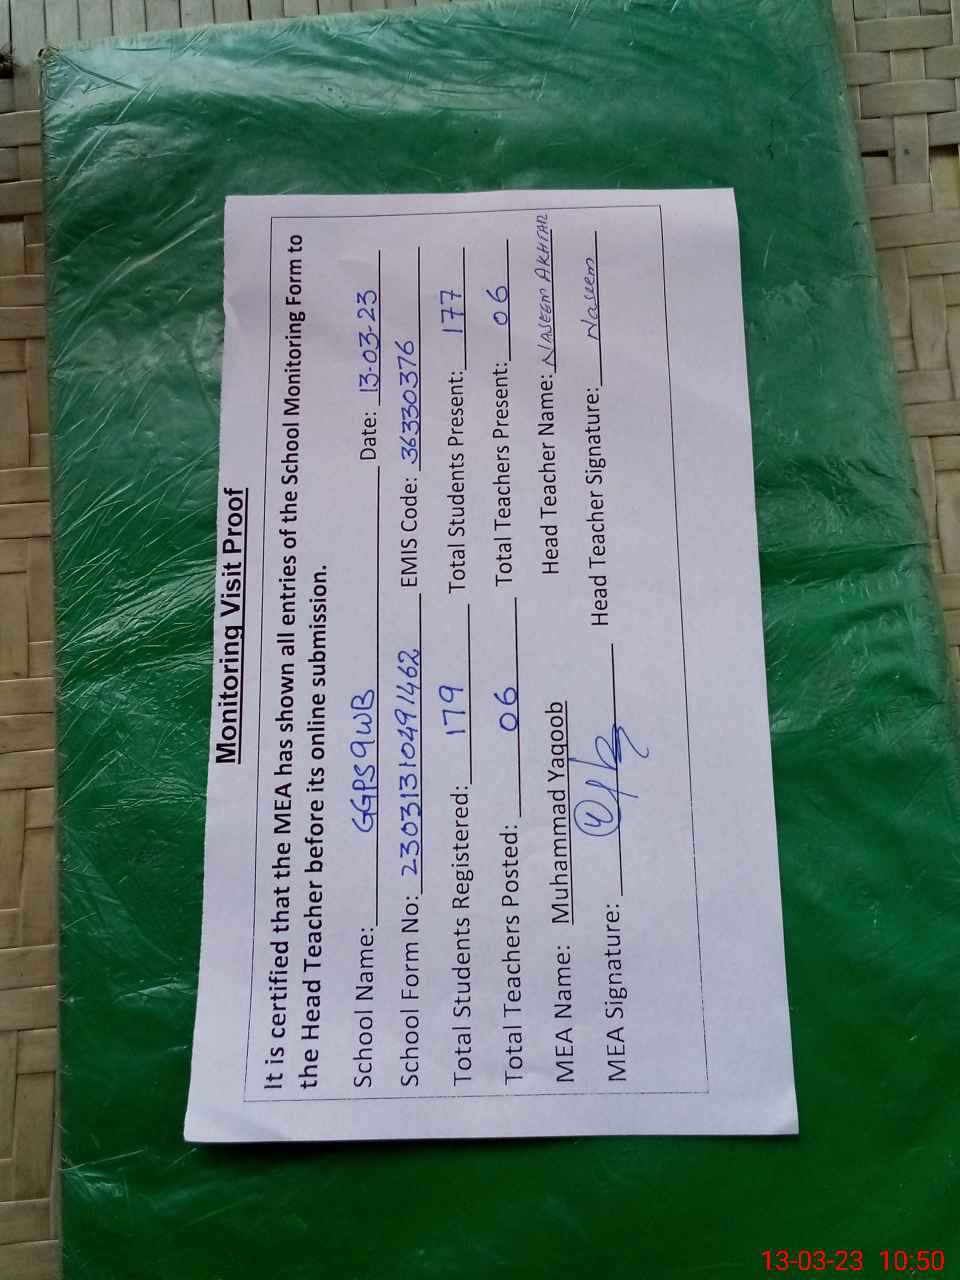 Monitoring Visit Proof
It is certified that the MEA has shown all entries of the School Monitoring Form to
the Head Teacher before its online submission.
School Name: GGPS 9WB Date: 13-03-23
School Form No: 23031310491462 EMIS Code: 36330376
Total Students Registered: 179 Total Students Present: 177
Total Teachers Posted: 06 Total Teachers Present: 06
MEA Name: Muhammad Yaqoob Head Teacher Name: NASEEM AKHTAR
MEA Signature: Head Teacher Signature: Naseem
13-03-23 10:50